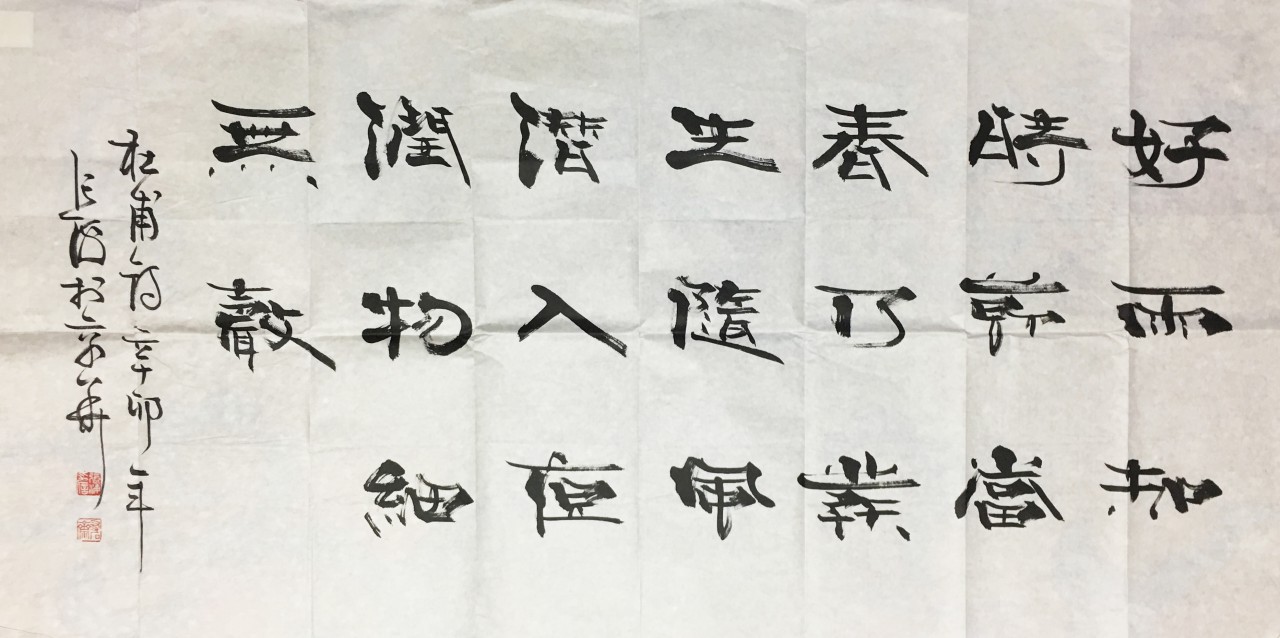 好雨知
時節當
春乃發
生隨風
潛入亱
潤物細
無聲
杜甫詩辛卯年
於京華